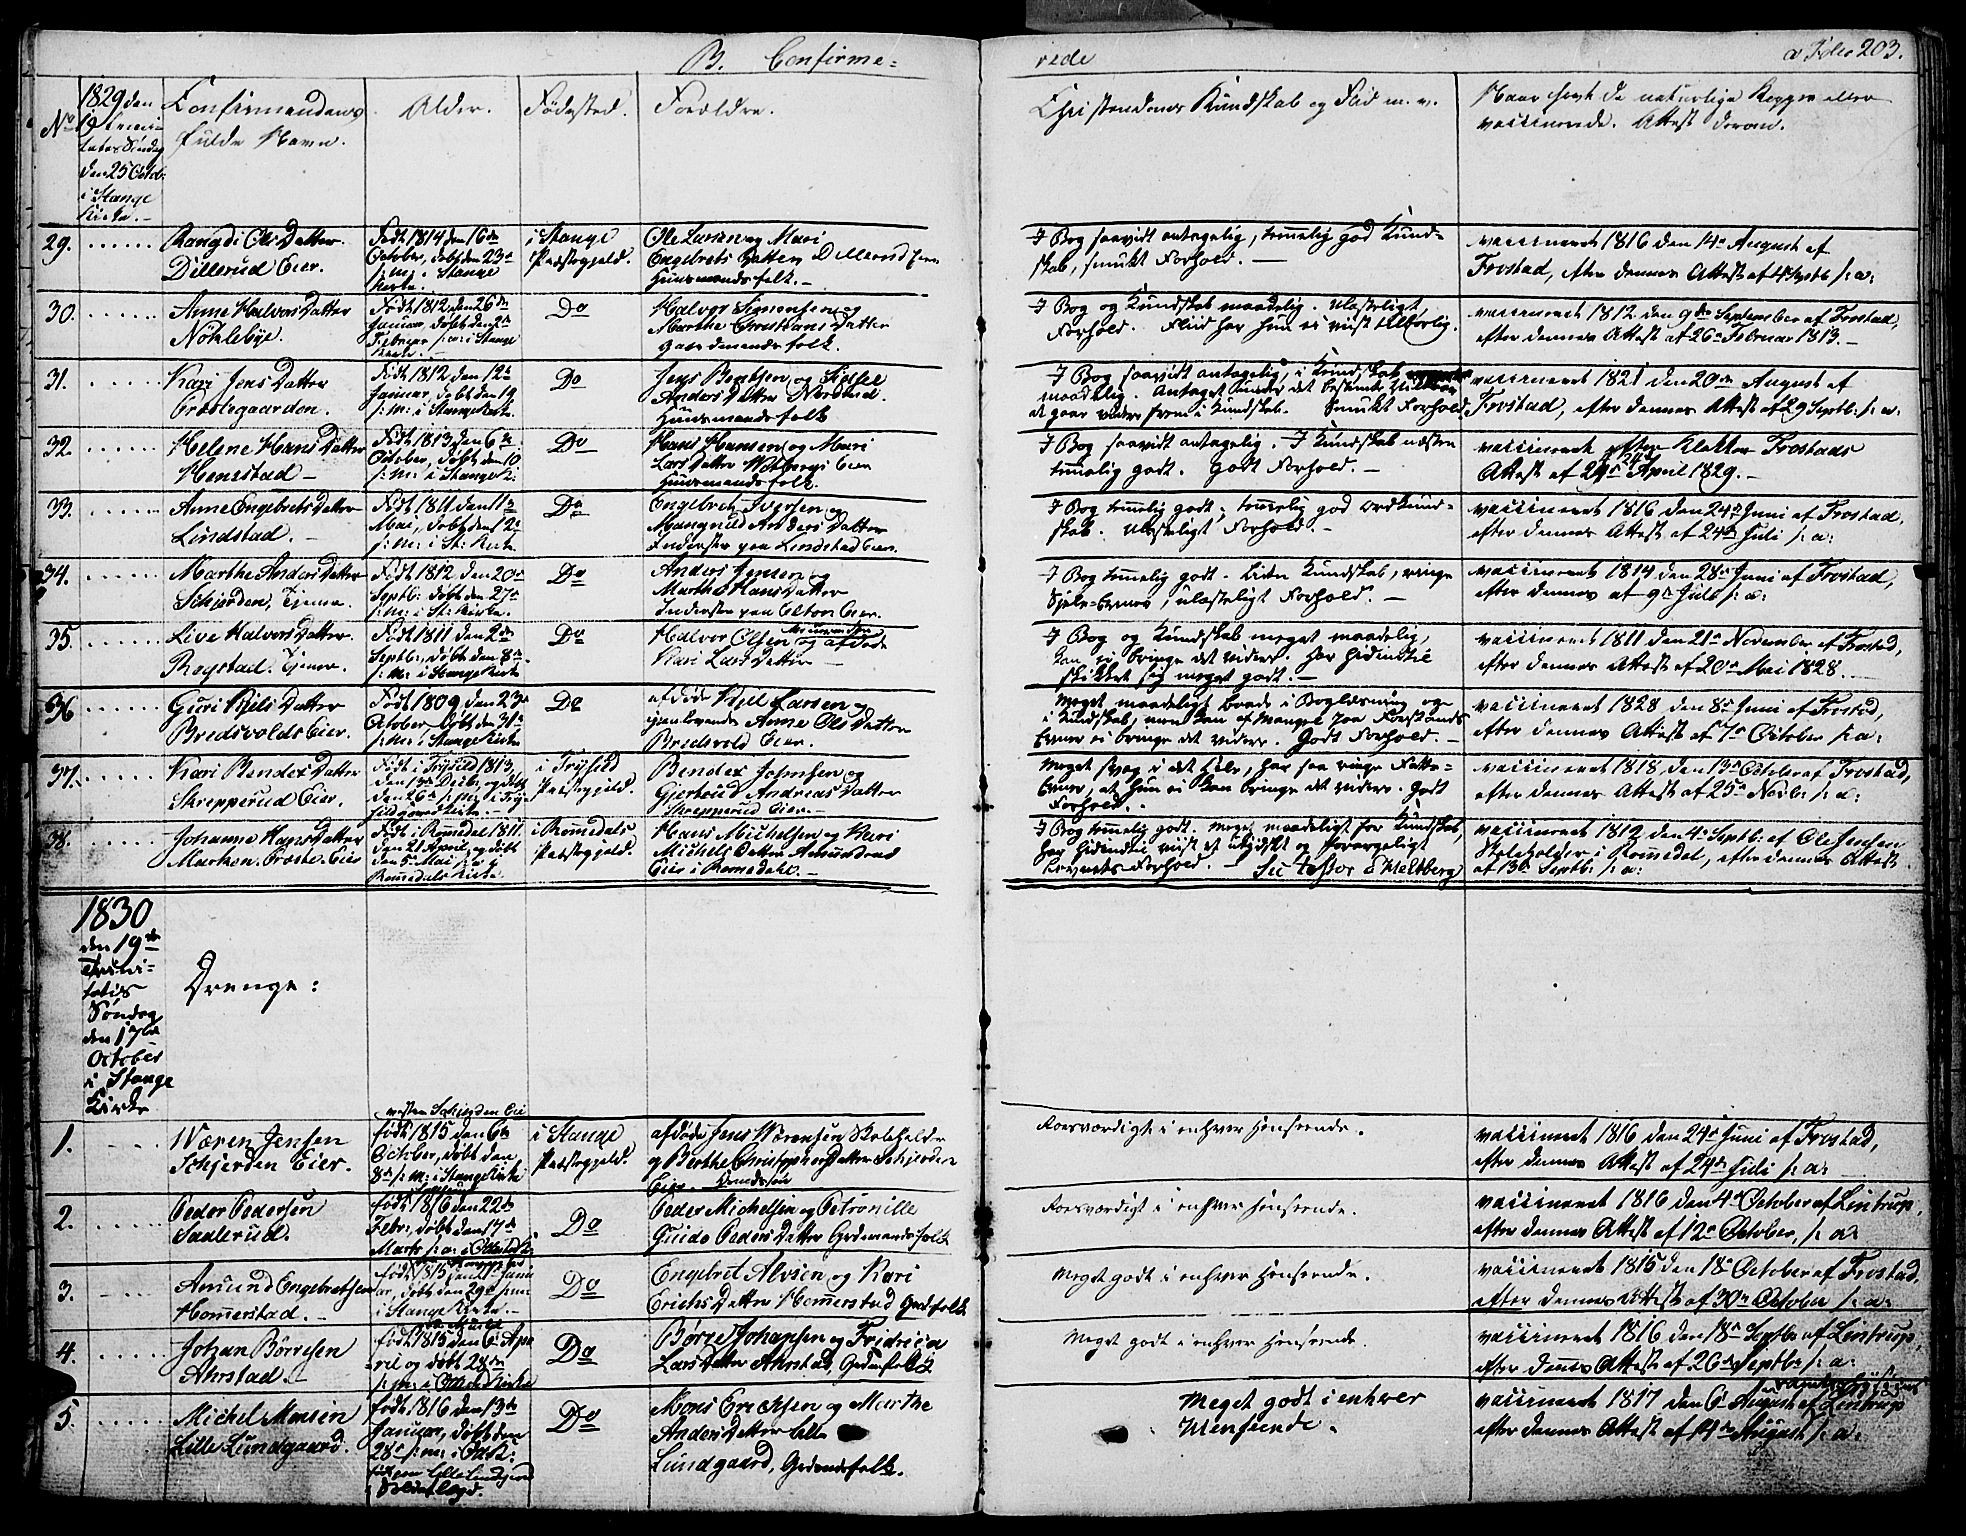 B. Confirme=
rede
a Folio 203.
No
1829 den
19 Trini-
tatis Søndag
den 25 Octob:
i Stange
Kirke.-
Confirmandens
fulde Navn.
Alder.
Fødested.
Forældre.
Christendoms Kundskab og Flid m. v.
Naar havt de naturlige Kopper eller
vaccinerede. Attest derom.
29.
Rangdi Ols Datter
Dillerud Eier.
Født 1814 den 16de
October, døbt den 23de
s: M: i Stange
Kirke.
i Stange
Præstegjeld.
Ole Larsen og Mari
Engebrets Datter Dillerud Eier
Huusmandsfolk.-
I Bog saavidt antagelig, temmelig god Kund-
skab, smukt Forhold.-
vaccineret 1816 den 14de August af
Frostad, efter dennes Attest af 4 Septb: s: a:
30.
Anne Halvors Datter
Nøhlebye.
Født 1812 den 26de
Januar, døbt den 2de
Februar s: a: i Stange
Kirke.-
Do
Halvor Simensen og
Marthe Christians Datter
Gaardmandsfolk.
I Bog og Kundskab maadelig. Ulasteligt
Forhold. Fliid har hun ei viist tilbørlig.
vaccineret 1812 den 9de September af Frostad,
efter dennes Attest af 26de Februar 1813.-
31.
Kari Jens Datter
Præstegaarden.
Født 1812 den 12de
Januar, døbt den 19
s: M: i Stange Kirke.
Do
Jens Bentsen og Sidsel
Anders Datter Nordstad.
Huusmandsfolk
I Bog saavidt antagelig, i Kundskab
maadelig. Antaget under det bestemte Vilkaar
at gaae videre frem i Kundskab. Smukt Forhold
vaccineret 1821 den 20de August af
Frostad, efter dennes Attest af 29 Septb: s: a:
32.
Helene Hans Datter
Hemstad-
Født 1813 den 6te
October, døbt den 10
s: M: i Stange K:
Do
Hans Hansen og Mari
Lars Datter Eier
Huusmandsfolk.
I Bog saavidt antagelig. I Kundskab næsten
temmelig godt. Godt Forhold.-
vaccineret efter Klokker Frostads
Attest af 24de April 1829.-
33.
Anne Engebrets Datter
Lindstad.-
Født 1811 den 11te
Mai, døbt den 12te
s: M: i St: Kirke.
Do
Engebret Iversen og
Mangnild Anders Datter
Inderster paa Lindstad Eier.
I Bog temmelig godt. temmelig god Ordkund-
skab. Ulasteligt Forhold.-
vaccineret 1816 den 24de Juni af Frostad,
efter dennes Attest af 24de Juli s: a:
34.
Marthe Anders Datter
Schjerden, Tjener.
Født 1812 den 20de
Septb: døbt den 27de
s: M: i St: Kirke.
Do
Anders Jensen og
Marthe Hans Datter
Inderster paa Elton Eier.
I Bog temmelig godt. Liden Kundskab, ringe
Sjels-Evner, ulasteligt Forhold.-
vaccineret 1814 den 28de Juni af Frostad,
efter dennes af 9de Juli s: a:
35.
Live Halvors Datter.
Rogstad. Tjener.
Født 1811 den 2den
Septb:, døbt den 8de
s: M: i Stange Kirke
Do
Halvor Olsen og afdøde
Kari Lars Datter-
I Bog og Kundskab meget maadelig,
kan ei bringe det videre. har hidindtil
skikket sig meget godt.-
vaccineret 1811 den 21de November af Frostad,
efter dennes Attest af 20de Mai 1828.
36
Guri Kjels Datter
Bredsvolds Eier.
Født 1809 den 23de
October, døbt den 31te
s: M: i Stange Kirke
Do
afdøde Kjel Larsen og
gjenlevende Anne Ols Datter
Bredsvold Eier.
Meget maadeligt baade i Boglæsning og
i Kundskab, men kan af Mangel paa Forstands
Evner ei bringe det videre. Godt Forhold.-
vaccineret 1828 den 8de Juni af Frostad,
efter dennes Attest af 7de October s: a:
37.
Kari Bendex Datter
Skrepperud Eier.
Født i Trysild 1813,
den 17de Decbr. og døbt
den 26de s: M: i Try-
sild Kirke.
i Trysild
Præstegjeld.
Bendex Johnsen og
Gjertrud Andreas Datter
Skrepperud Eier.-
Meget svag i det Hele, har saa ringe Fatte-
Evner, at hun ei kan bringe det videre. Godt
Forhold.
vaccineret 1818 den 13de October af Frostad,
efter dennes Attest af 25de Novb: s: a:
38.
Johanne Hans Datter
Marken. Præste-Eier
Født i Romedal 1811.
den 21 April, og døbt
den 5te Mai s: a:
Romedals Kirke
i Romedals
Præstegjeld.
Hans Michelsen og Kari
Michels Datter Amundrud
Eier i Romedahl.-
I Bog temmelig godt. Meget maadeligt for Kundskab,
har hidindtil viist et utydskt og forargeligt
Levnets-Forhold.-
vaccineret 1812 den 4de Septb: af Ole Jensen
Skoleholder i Romedal, efter dennes Attest
af 13de Septb: s: a:
1830
den 19de
Trini-
tatis
Søndag
den 17de
October
i Stange
Kirke
Drenge:
1.
Nøren Jensen
Schjerden Eier.
vestre Schjerden Eie
født 1815 den 6te
October, døbt den
8de s: M: i Stange Kirke
i Stange
Præstegjeld.
afdøde Jens Nørensen Skoleholder
og Berthe Christophers Datter Schjerden
Eier.
Roesværdigt i enhver Henseende.
vaccineret 1816 den 24de Juni af Frostad,
efter dennes Attest af 24de Juli s: a:
2.
Peder Pedersen
Saalerud.
født 1816 den 22de
Febr., døbt den 17de
Marts s: a: i Ottestad K:
Do
Peder Michelsen og Petronille
Guido Peders Datter Grdmandsfolk
Roesværdigt i enhver Henseende.
vaccineret 1816 den 4de October af Lintrup,
efter dennes Attest af 12te October, s: a:
3.
Amund Engebretsen
Hommerstad.-
født 1815 den Janu
ar, døbt den 29de s: m:
i Stange Kirke.-
Do
Engebret Alvsen og Kari
Erichs Datter Hommerstad Grdfolk
Meget godt i enhver Henseende.
vaccineret 1815 den 18de October af Frostad,
efter dennes Attest af 30te October s: a:
4.
Johan Børresen
Ahrstad.
født 1815 den 6te Ap-
ril og døbt 28de
s: M: i Ottestad Kirke
Do
Børre Johansen og Fridricia
Lars Datter Ahrstad, Grdmfolk
Meget godt i enhver Henseende.
vaccineret 1816 den 18de Septbr af Lintrup,
efter dennes Attest af 26de Septb: s: a:
5.
Michel Monsen
Lille Lundgaard.
født 1816 den 13de
Januar, døbt den
28de s: m: i Ottest. K:
Do
Mons Erichsen og Marthe
Anders Datter Lille
Lundgaard, Grdmdsfolk.
Meget godt i enhver
Henseende.
vaccineret 1817 den 6te August af Lintrup
efter dennes Attest af 14de August s: a: